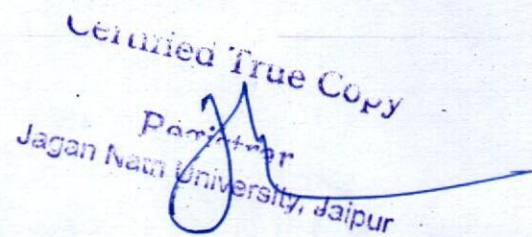 Certified True Copy
Registrar
Jagan Nath University, Jaipur